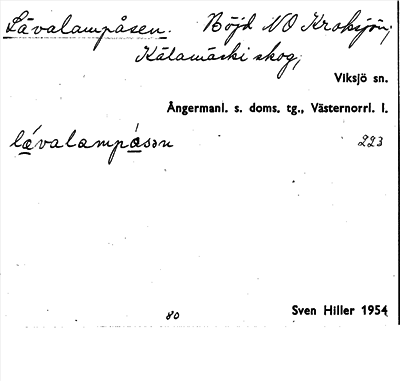 Lävalampåsen. Höjd NO Kroksjön,
Kälamäski skog,
Viksjö sn.
Ångermanl. s. doms. tg., Västernorrl. l.
lávalampásən 223
80 Sven Hiller 1954